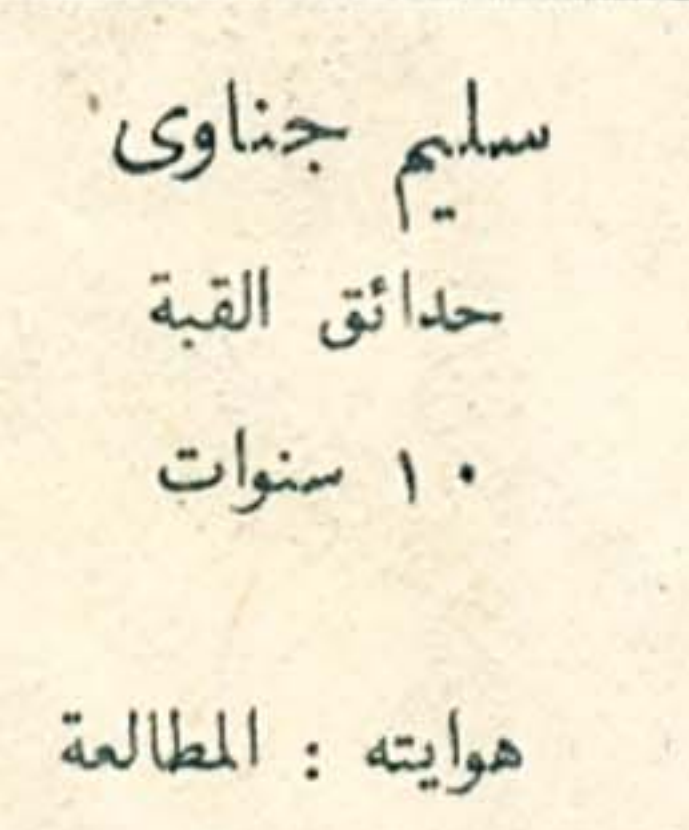 سليم جناوى
حدائق القبة
١٠ سنوات
هوايته : المطالعة